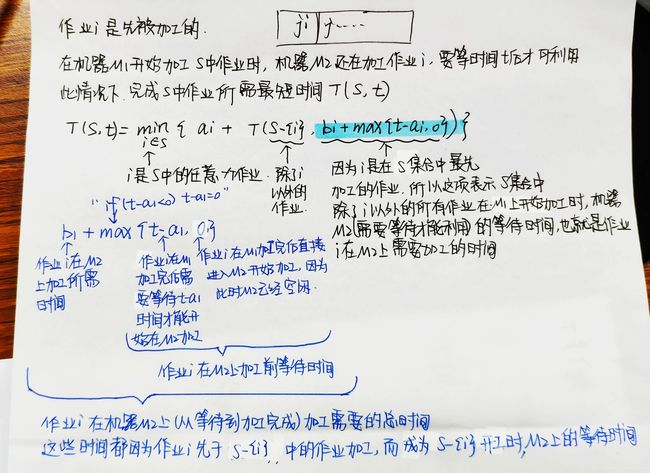 作业i是先被加工的.
ji j.....
在机器M1开始加工S中作业时, 机器M2还在加工作业j, 要等时间t后才可利用
此情况下, 完成S中作业所需最短时间T(S,t)
T(S,t)= min i∈S { ai + T(S-{i}, bi+max{t-ai,0}) }
i是S中的任意一个作业. 除了i以外的作业.
因为i是在S集合中最先
加工的作业. 所以这项表示S集合中
除了i以外的所有作业在M1上开始加工时, 机器
M2需要等待才能利用的等待时间, 也就是作业
i在M2上需要加工的时间
"if(t-ai<0) t-ai=0"
bi + max{t-ai, 0}
作业i在M2
上加工所需
时间
作业i在M1
加工完后需
要等待t-ai
时间才能开
始在M2加工
作业i在M1加工完后直接
进入M2开始加工, 因为
此时M2已经空闲.
作业i在M2上加工前等待时间
作业i在机器M2上(从等待到加工完成)加工需要的总时间
这些时间都因为作业i先于 S-{i} 中的作业加工, 而成为 S-{i}开工时, M2上的等待时间